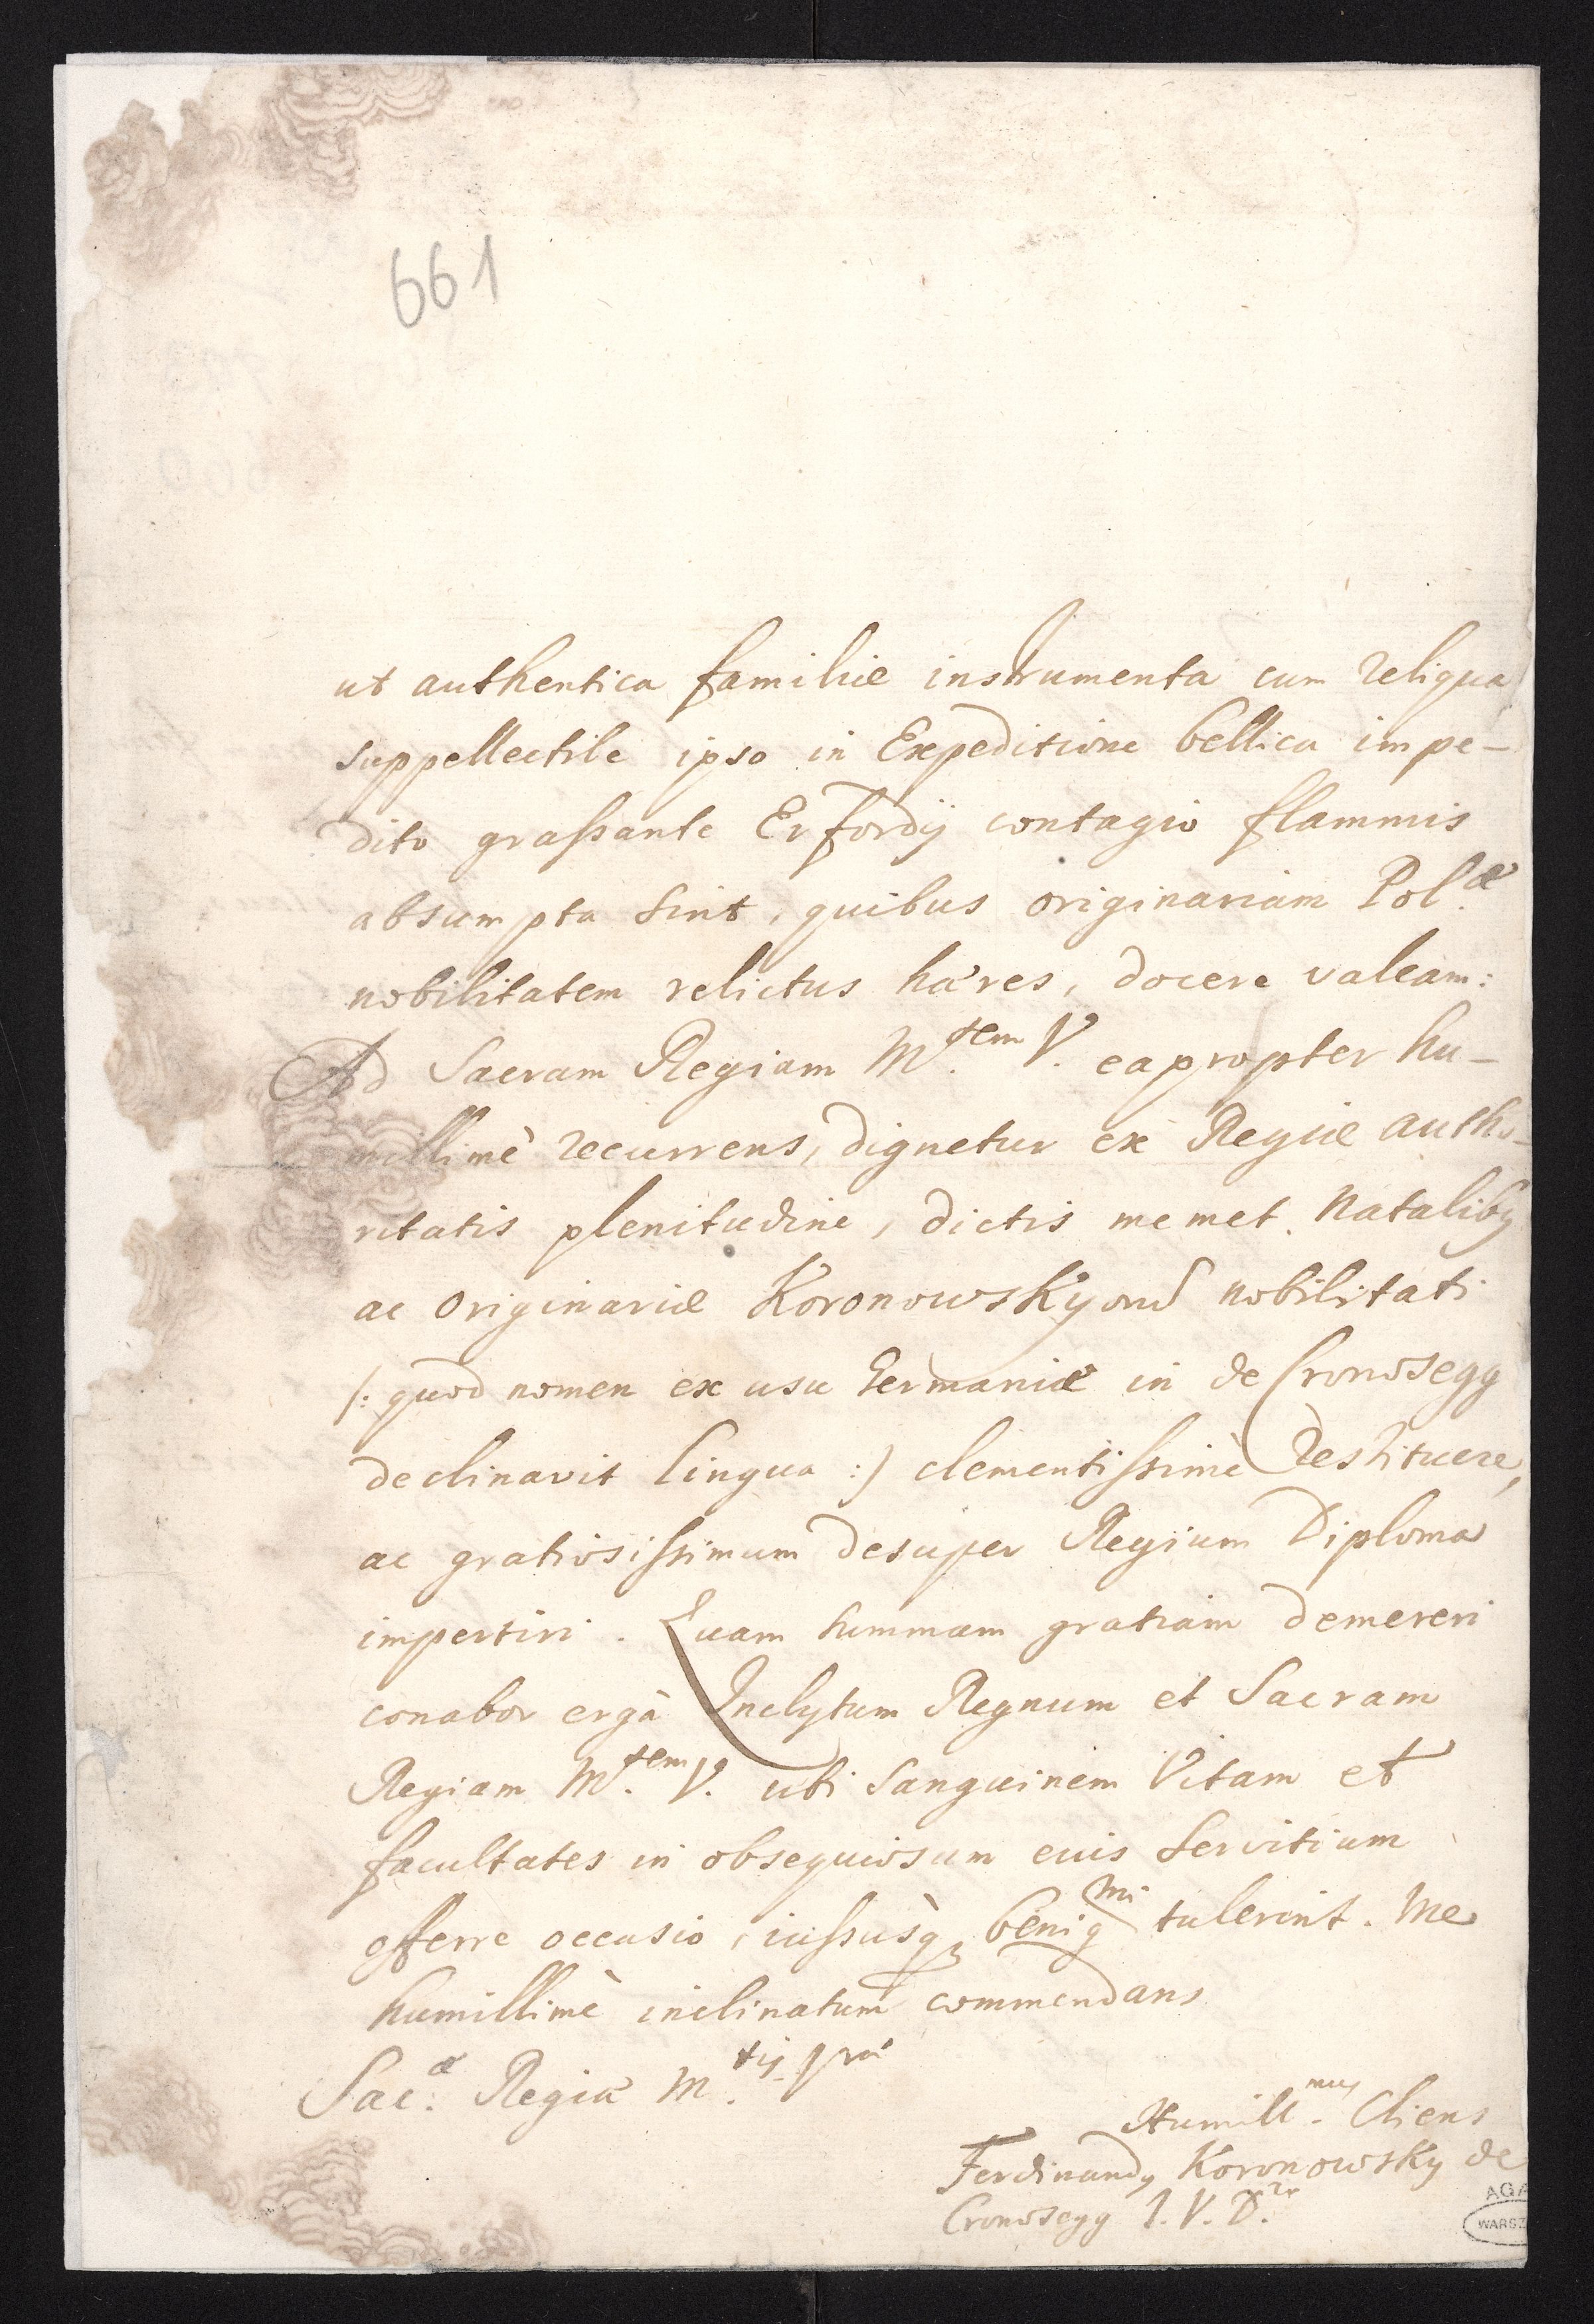 661
ut authentica familiæ instrumenta cum reliqua
suppellectile ipso in Expeditione bellica impe-
dito graſsante Erfordÿ contagio flammis
absumpta sint, quibus originariam Pol.æ
nobilitatem relictus hæres, docere valeam:
Ad Sacram Regiam M.tem V. eapropter hu-
millimè recurrens, dignetur ex Regiæ autho-
ritatis plenitudine, dictis memet Natalibꝰ
ac originariæ Koronowskyonu͂ nobilitati
/: quod nomen ex usu Germaniæ in de Cronosegg
declinavit lingua :/ clementiſsimè restituere,
ac gratiosiſsimum desuper Regium Diploma
impertiri. Quam summam gratiam demereri
conabor ergà Inclytum Regnum et Sacram
Regiam M.tem V. ubi Sanguinem Vitam et
facultates in obsequiosum eius servitium
offerre occasio, iuſsusq̀ꝫ benigmi tulerint. Me
humillimè inclinatum commendans
Sac.æ Regiæ M.tis Vræ
Humill.mus Cliens
Ferdinandꝰ Koronowsky de
Cronosegg I. V. D.r
AGA
WARSZ